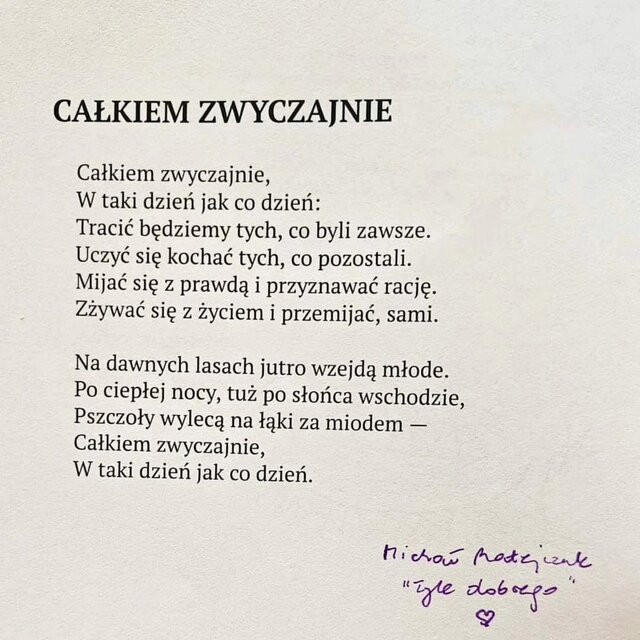 CAŁKIEM ZWYCZAJNIE
Całkiem zwyczajnie,
W taki dzień jak co dzień:
Tracić będziemy tych, co byli zawsze.
Uczyć się kochać tych, co pozostali.
Mijać się z prawdą i przyznawać rację.
Zżywać się z życiem i przemijać, sami.
Na dawnych lasach jutro wzejdą młode.
Po ciepłej nocy, tuż po słońca wschodzie,
Pszczoły wylecą na łąki za miodem —
Całkiem zwyczajnie,
W taki dzień jak co dzień.
Michał Matejczuk
"Tyle dobrego"